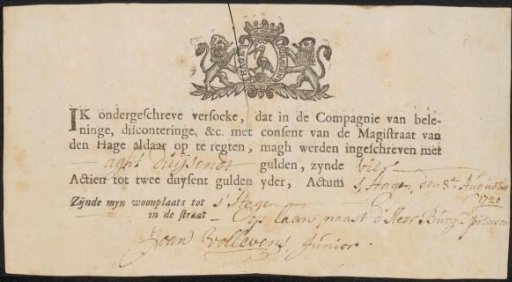 IK ondergeschreve versoeke, dat in de Compagnie van bele-
ninge, disconteringe, &c. met consent van de Magistraat van
den Hage aldaar op te regten, magh werden ingeschreven met
aght duijsendt gulden, zynde vier
Actien tot twee duysent gulden yder, Actum s'Hage, den 8t. Augustus
1720
Zijnde myn woonplaats tot s'Hage
in de straat Op 't laan, naast d'Heer Burgr.
Joan Vollevens, Junior.